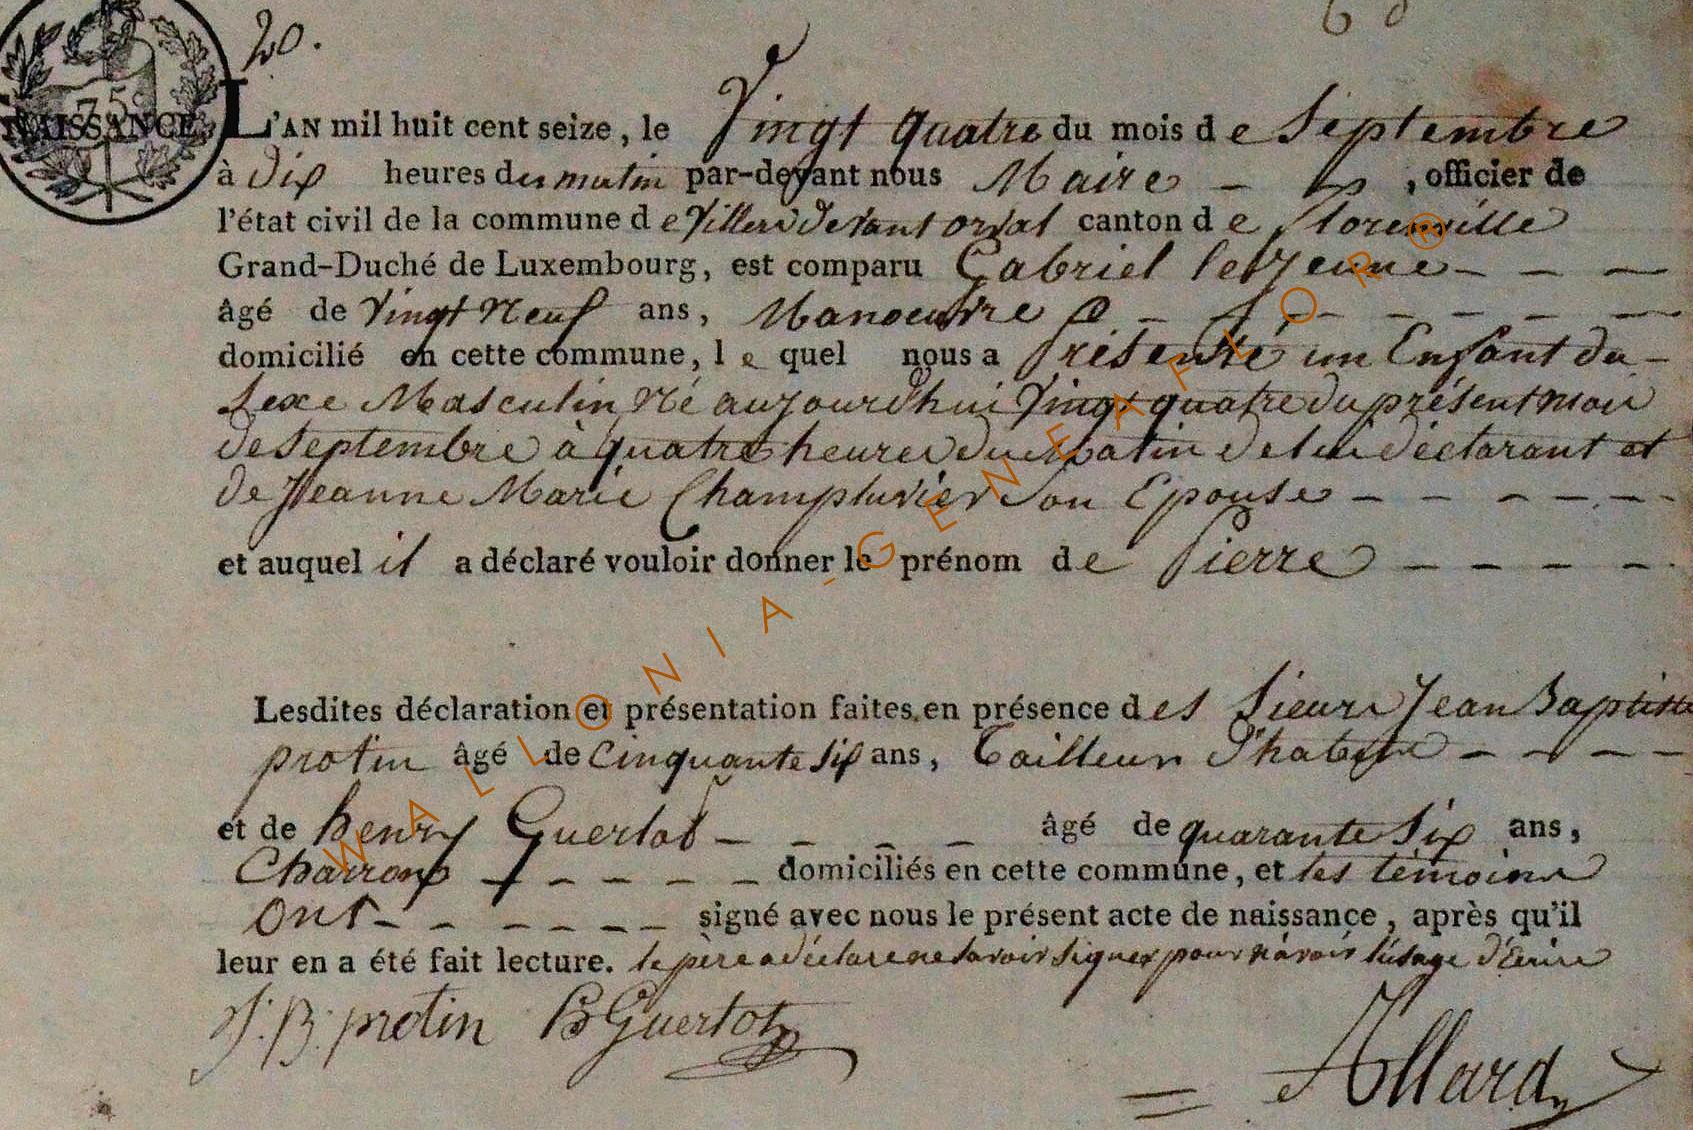 20.
75
NAISSANCE L'AN mil huit cent seize, le Vingt quatre du mois de Septembre
à dix heures du matin par-devant nous Maire , officier de
l'état civil de la commune de Villers devant orval canton de florenville
Grand-Duché de Luxembourg, est comparu Gabriel leJeune
âgé de Vingt Neuf ans, Manoeuvre
domicilié en cette commune, le quel nous a Présenté un Enfant du
Sexe Masculin Né aujourdhui Vingt quatre du présent mois
de Septembre à quatre heures du Matin de lui déclarant et
de Jeanne Marie Champluvier Son Epouse
et auquel il a déclaré vouloir donner le prénom de Pierre
Lesdites déclaration et présentation faites en présence des Sieurs Jean Baptiste
protin âgé de Cinquante Six ans, Tailleur d'habits
et de henry Guerlot âgé de quarante Six ans,
Charron domiciliés en cette commune, et les témoins
ont signé avec nous le présent acte de naissance, après qu'il
leur en a été fait lecture. le père a déclaré ne savoir signer pour n'avoir l'usage d'Ecrire
J. B. protin h Guerlot
Allard
WALLONIA-GENEAFLOR®